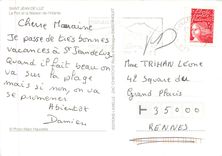 SAINT JEAN DE LUZ
Cherre Marraine
Je passe de très bonnes
vacances à St Jean de Luz
Quand il fait beau on
va sur la plage
mais si non, on va
se promener
Abientôt
Damien
Mme TRIHAN Léone
42 Square du
Grand Plaris
35000
RENNES